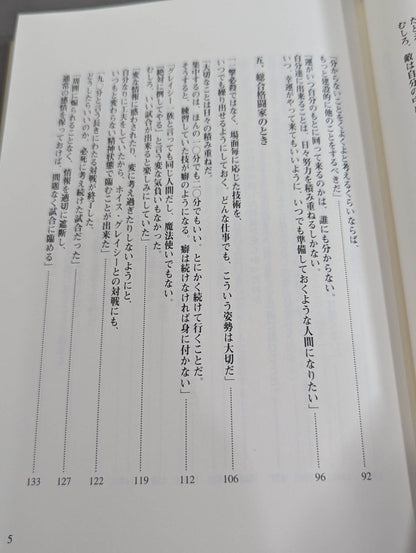 むしろ、敵は自分の
「分からないことをくよくよと考えるぐらいならば、
もっと建設的に他のことをするべきだ」………92
「運がいつ自分のもとに回って来るのかは、誰にも分からない。
自分達に出来ることは、日々努力を積み重ねるしかない。
いつ、幸運がやって来てもいいように、いつでも準備しておくような人間になりたい」………96
五、総合格闘家のとき
「一撃必殺ではなく、場面毎に応じた技術を、
いつでも繰り出せるようにしておく、どんな仕事でも、こういう姿勢は大切だ」………106
「大切なことは日々の積み重ねだ。
集中するのは、ほんの一〇分でも二〇分でもいい、とにかく続けて行くことだ。
そうすると、練習していた技が癖のようになる。癖は続けなければ身に付かない」………112
「グレイシー一族と言っても同じ人間だし、魔法使いでもない。
『絶対に倒してやる』と言った変な気負いもなかった
むしろ、いい試合が出来ると楽しみにしていた」………119
「変な情報に惑わされたり、変に考え過ぎたりしないようにと、
自分なりに工夫をしていたから、ホイス・グレイシーとの対戦にも、
いつもと変わらない精神状態で臨むことが出来た」………122
「九〇分と言う長きにわたる対戦が終了した。
どうしたらいいのか、必死に考え続けた試合だった」………127
「周囲に煽られることなく、情報を適切に遮断し、
通常の感情を保っておけば、問題なく試合に臨める」………133
5